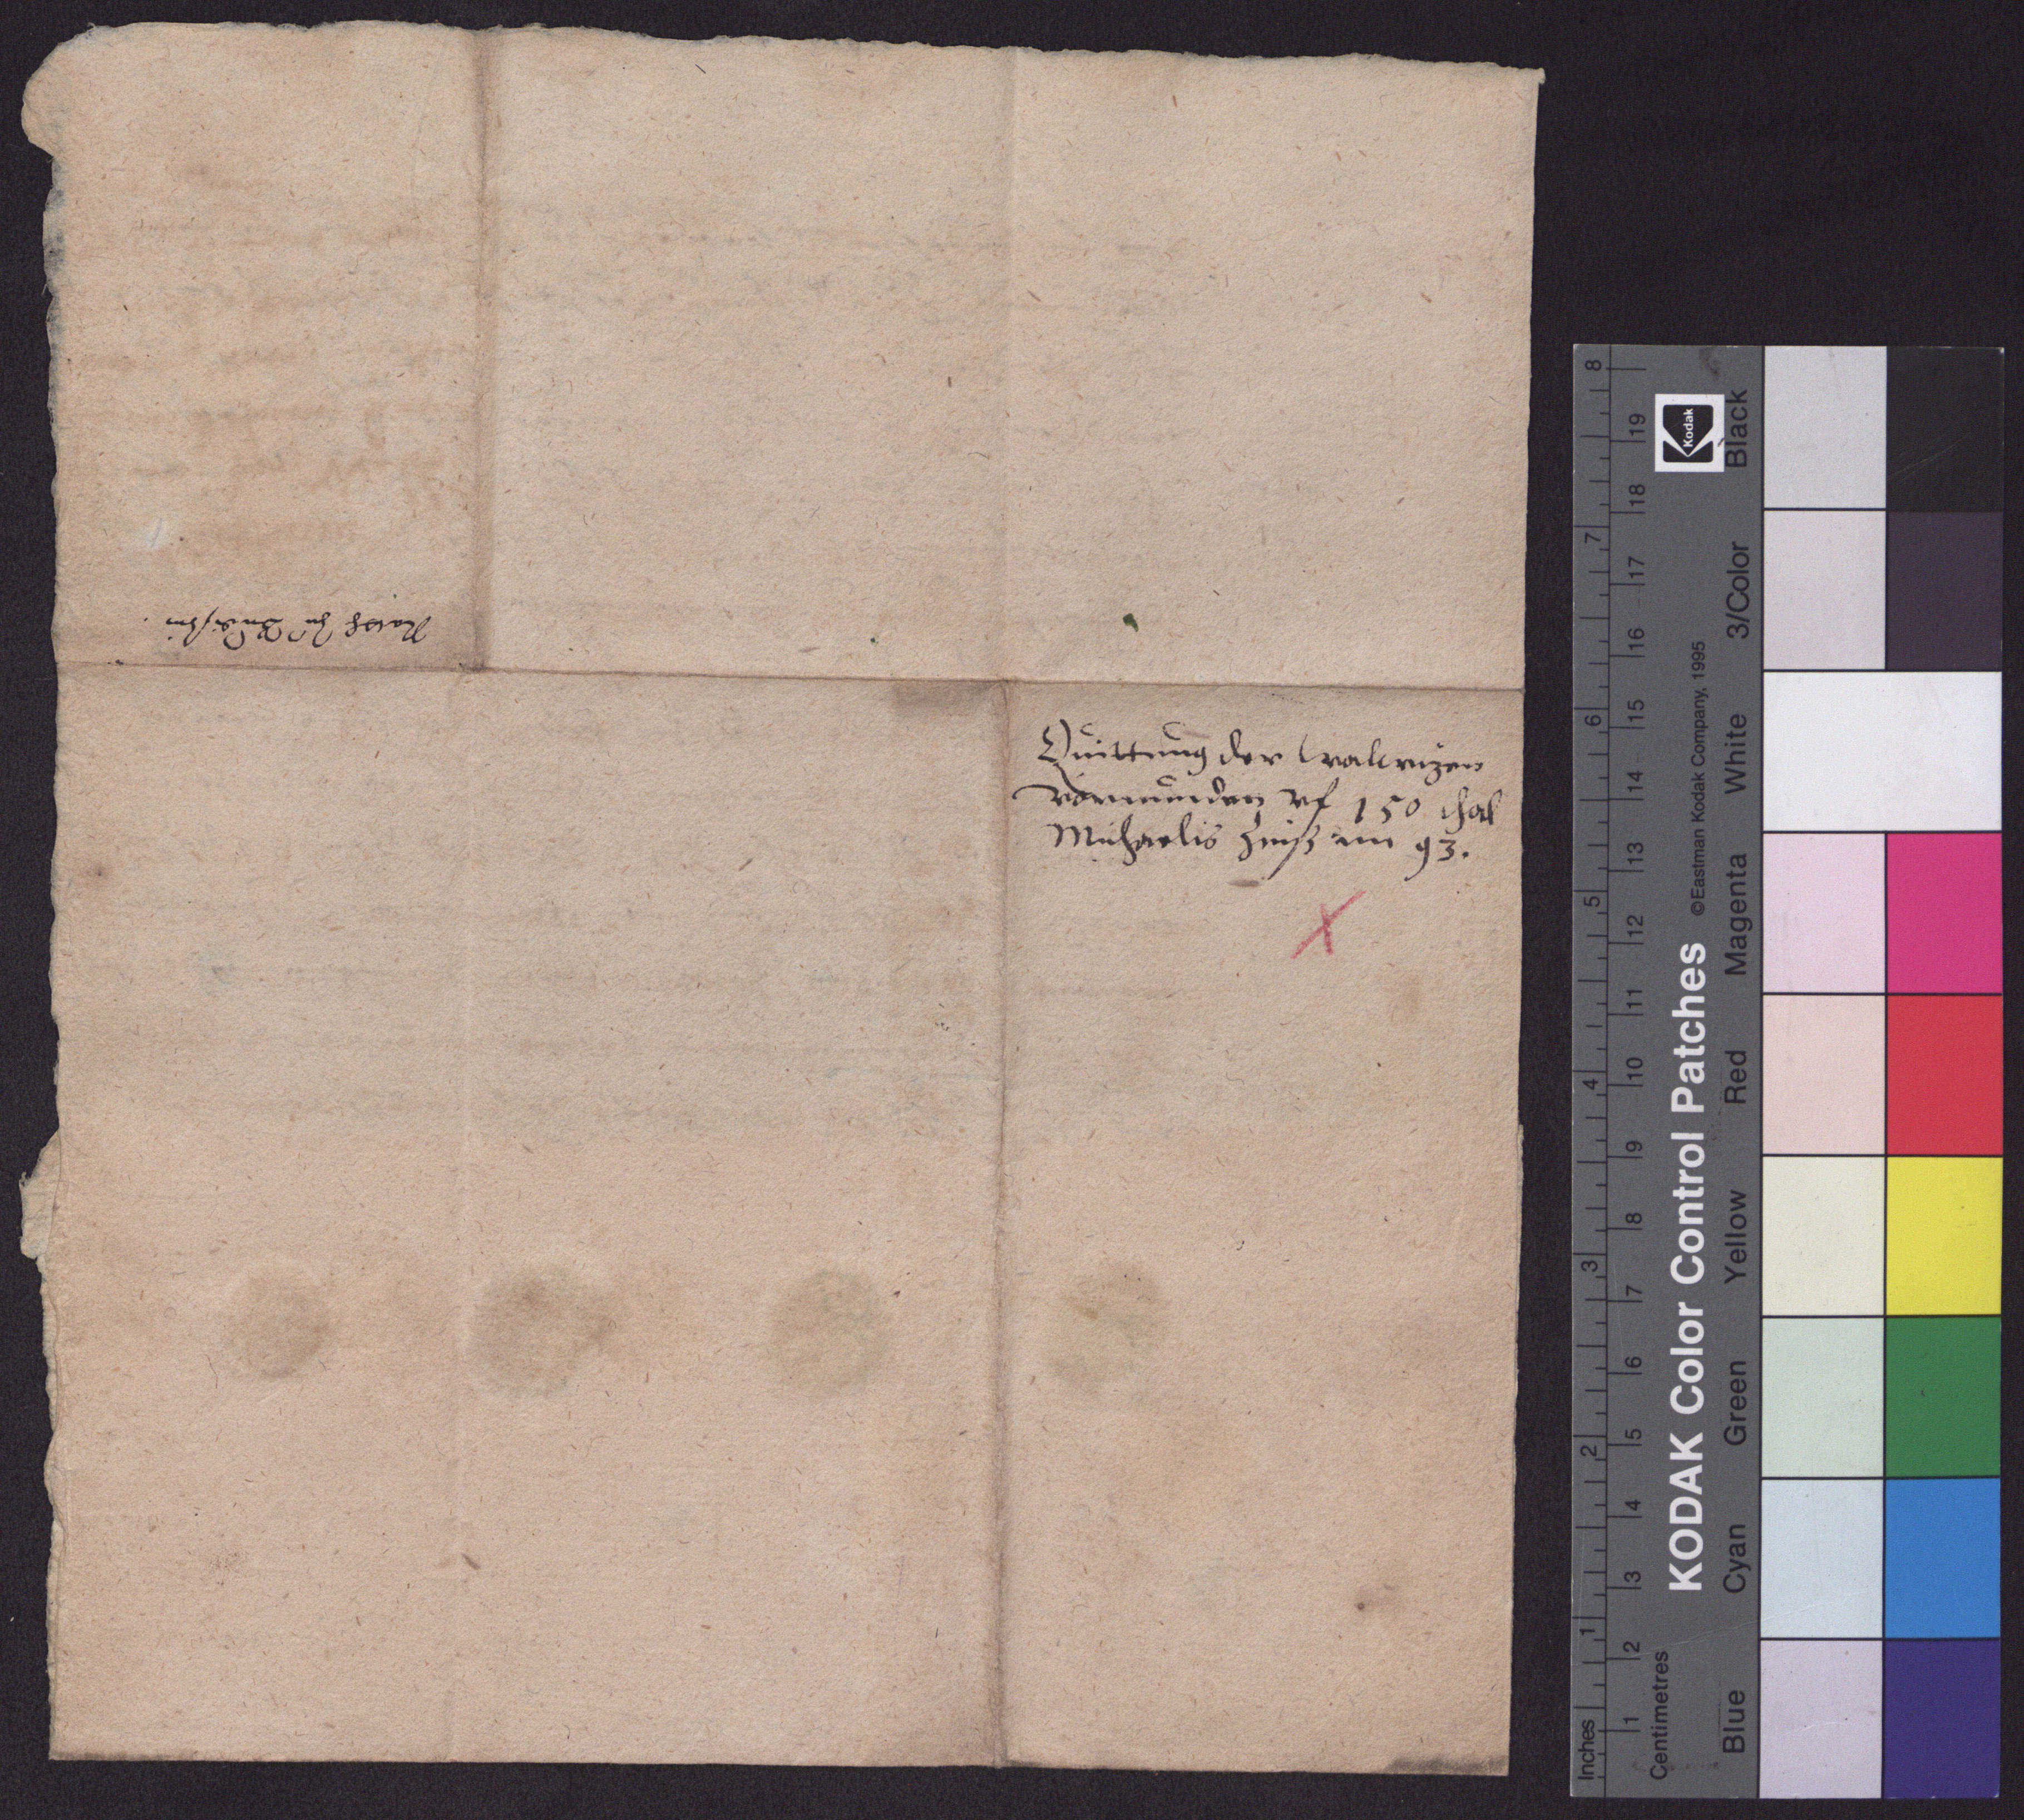 Rath zu Budissin.
Quittung der
vormunden vf 150 thal
Michaelis Zinß im 93.
Inches
Centimetres
1 2 3 4 5 6 7 8
1 2 3 4 5 6 7 8 9 10 11 12 13 14 15 16 17 18 19
KODAK Color Control Patches ©Eastman Kodak Company, 1995
Kodak
Blue Cyan Green Yellow Red Magenta White 3/Color Black